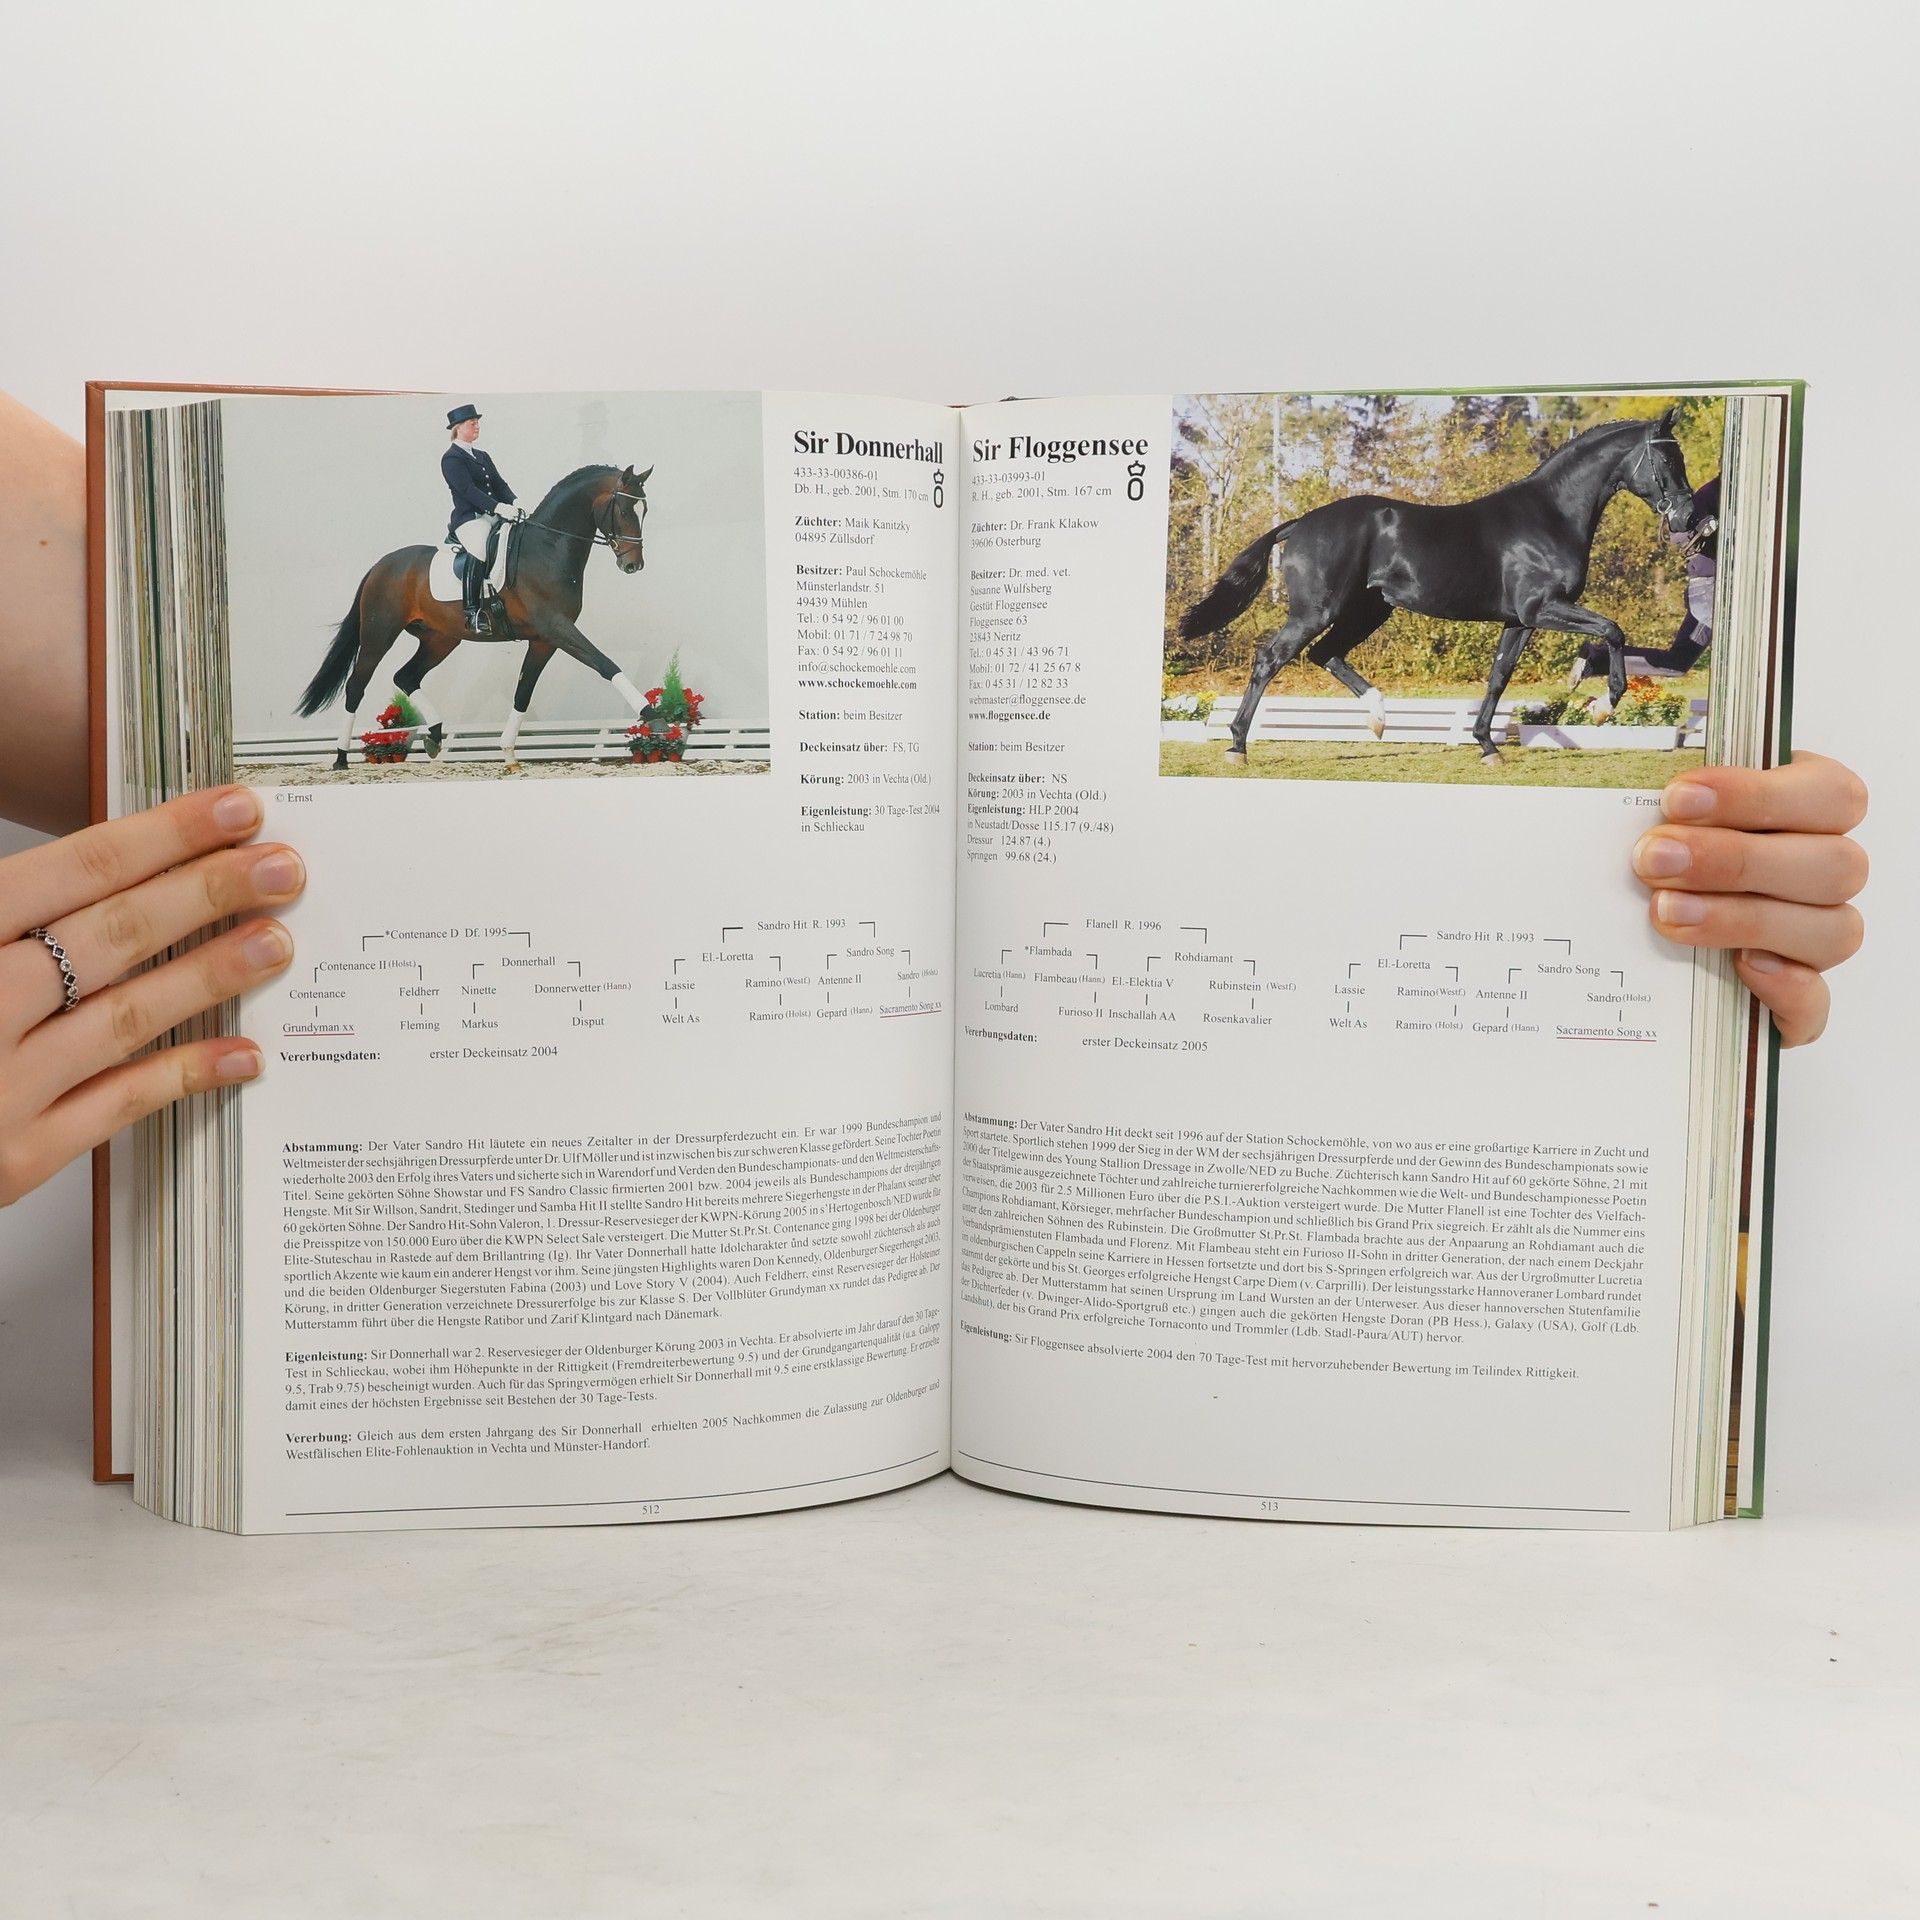 Sir Donnerhall
433-33-00386-01
Db. H., geb. 2001, Stm. 170 cm
Züchter: Maik Kanitzky
04895 Züllsdorf
Besitzer: Paul Schockemöhle
Münsterlandstr. 51
49439 Mühlen
Tel.: 0 54 92 / 96 01 00
Mobil: 01 71 / 7 24 98 70
Fax: 0 54 92 / 96 01 11
info@schockemoehle.com
www.schockemoehle.com
Station: beim Besitzer
Deckeinsatz über: FS, TG
Körung: 2003 in Vechta (Old.)
Eigenleistung: 30 Tage-Test 2004
in Schlieckau
© Ernst
*Contenance D Df. 1995
Sandro Hit R. 1993
Contenance II (Holst.)
Donnerhall
El.-Loretta
Sandro Song
Contenance
Feldherr
Ninette
Donnerwetter (Hann.)
Lassie
Ramino (Westf.)
Antenne II
Sandro (Holst.)
Grundyman xx
Fleming
Markus
Disput
Welt As
Ramiro (Holst.)
Gepard (Hann.)
Sacramento Song xx
Vererbungsdaten: erster Deckeinsatz 2004
Abstammung: Der Vater Sandro Hit läutete ein neues Zeitalter in der Dressurpferdezucht ein. Er war 1999 Bundeschampion und
Weltmeister der sechsjährigen Dressurpferde unter Dr. Ulf Möller und ist inzwischen bis zur schweren Klasse gefördert. Seine Tochter Poetin
wiederholte 2003 den Erfolg ihres Vaters und sicherte sich in Warendorf und Verden den Bundeschampionats- und den Weltmeisterschafts-
Titel. Seine gekörten Söhne Showstar und FS Sandro Classic firmierten 2001 bzw. 2004 jeweils als Bundeschampions der dreijährigen
Hengste. Mit Sir Willson, Sandrit, Stedinger und Samba Hit II stellte Sandro Hit bereits mehrere Siegerhengste in der Phalanx seiner über
60 gekörten Söhne. Der Sandro Hit-Sohn Valeron, 1. Dressur-Reservesieger der KWPN-Körung 2005 in s'Hertogenbosch/NED wurde für
die Preisspitze von 150.000 Euro über die KWPN Select Sale versteigert. Die Mutter St.Pr.St. Contenance ging 1998 bei der Oldenburger
Elite-Stuteschau in Rastede auf dem Brillantring (Ig). Ihr Vater Donnerhall hatte Idolcharakter und setzte sowohl züchterisch als auch
sportlich Akzente wie kaum ein anderer Hengst vor ihm. Seine jüngsten Highlights waren Don Kennedy, Oldenburger Siegerhengst 2003,
und die beiden Oldenburger Siegerstuten Fabina (2003) und Love Story V (2004). Auch Feldherr, einst Reservesieger der Holsteiner
Körung, in dritter Generation verzeichnete Dressurerfolge bis zur Klasse S. Der Vollblüter Grundyman xx rundet das Pedigree ab. Der
Mutterstamm führt über die Hengste Ratibor und Zarif Klintgard nach Dänemark.
Eigenleistung: Sir Donnerhall war 2. Reservesieger der Oldenburger Körung 2003 in Vechta. Er absolvierte im Jahr darauf den 30 Tage-
Test in Schlieckau, wobei ihm Höhepunkte in der Rittigkeit (Fremdreiterbewertung 9.5) und der Grundgangartenqualität (u.a. Galopp
9.5, Trab 9.75) bescheinigt wurden. Auch für das Springvermögen erhielt Sir Donnerhall mit 9.5 eine erstklassige Bewertung. Er erzielte
damit eines der höchsten Ergebnisse seit Bestehen der 30 Tage-Tests.
Vererbung: Gleich aus dem ersten Jahrgang des Sir Donnerhall erhielten 2005 Nachkommen die Zulassung zur Oldenburger und
Westfälischen Elite-Fohlenauktion in Vechta und Münster-Handorf.
512
Sir Floggensee
433-33-03993-01
R. H., geb. 2001, Stm. 167 cm
Züchter: Dr. Frank Klakow
39606 Osterburg
Besitzer: Dr. med. vet.
Susanne Wulfsberg
Gestüt Floggensee
Floggensee 63
23843 Neritz
Tel.: 0 45 31 / 43 96 71
Mobil: 01 72 / 41 25 67 8
Fax: 0 45 31 / 12 82 33
webmaster@floggensee.de
www.floggensee.de
Station: beim Besitzer
Deckeinsatz über: NS
Körung: 2003 in Vechta (Old.)
Eigenleistung: HLP 2004
in Neustadt/Dosse 115.17 (9./48)
Dressur 124.87 (4.)
Springen 99.68 (24.)
© Ernst
Flanell R. 1996
Sandro Hit R .1993
*Flambada
Rohdiamant
El.-Loretta
Sandro Song
Lucretia (Hann.)
Flambeau (Hann.)
El.-Elektia V
Rubinstein (Westf.)
Lassie
Ramino (Westf.)
Antenne II
Sandro (Holst.)
Lombard
Furioso II
Inschallah AA
Rosenkavalier
Welt As
Ramiro (Holst.)
Gepard (Hann.)
Sacramento Song xx
Vererbungsdaten: erster Deckeinsatz 2005
Abstammung: Der Vater Sandro Hit deckt seit 1996 auf der Station Schockemöhle, von wo aus er eine großartige Karriere in Zucht und
Sport startete. Sportlich stehen 1999 der Sieg in der WM der sechsjährigen Dressurpferde und der Gewinn des Bundeschampionats sowie
2000 der Titelgewinn des Young Stallion Dressage in Zwolle/NED zu Buche. Züchterisch kann Sandro Hit auf 60 gekörte Söhne, 21 mit
der Staatsprämie ausgezeichnete Töchter und zahlreiche turniererfolgreiche Nachkommen wie die Welt- und Bundeschampionesse Poetin
verweisen, die 2003 für 2.5 Millionen Euro über die P.S.I.-Auktion versteigert wurde. Die Mutter Flanell ist eine Tochter des Vielfach-
Champions Rohdiamant, Körsieger, mehrfacher Bundeschampion und schließlich bis Grand Prix siegreich. Er zählt als die Nummer eins
unter den zahlreichen Söhnen des Rubinstein. Die Großmutter St.Pr.St. Flambada brachte aus der Anpaarung an Rohdiamant auch die
Verbandsprämienstuten Flambada und Florenz. Mit Flambeau steht ein Furioso II-Sohn in dritter Generation, der nach einem Deckjahr
im oldenburgischen Cappeln seine Karriere in Hessen fortsetzte und dort bis S-Springen erfolgreich war. Aus der Urgroßmutter Lucretia
stammt der gekörte und bis St. Georges erfolgreiche Hengst Carpe Diem (v. Carprilli). Der leistungsstarke Hannoveraner Lombard rundet
das Pedigree ab. Der Mutterstamm hat seinen Ursprung im Land Wursten an der Unterweser. Aus dieser hannoverschen Stutenfamilie
der Dichterfeder (v. Dwinger-Alido-Sportgruß etc.) gingen auch die gekörten Hengste Doran (PB Hess.), Galaxy (USA), Golf (Ldb.
Landshut), der bis Grand Prix erfolgreiche Tornaconto und Trommler (Ldb. Stadl-Paura/AUT) hervor.
Eigenleistung: Sir Floggensee absolvierte 2004 den 70 Tage-Test mit hervorzuhebender Bewertung im Teilindex Rittigkeit.
513